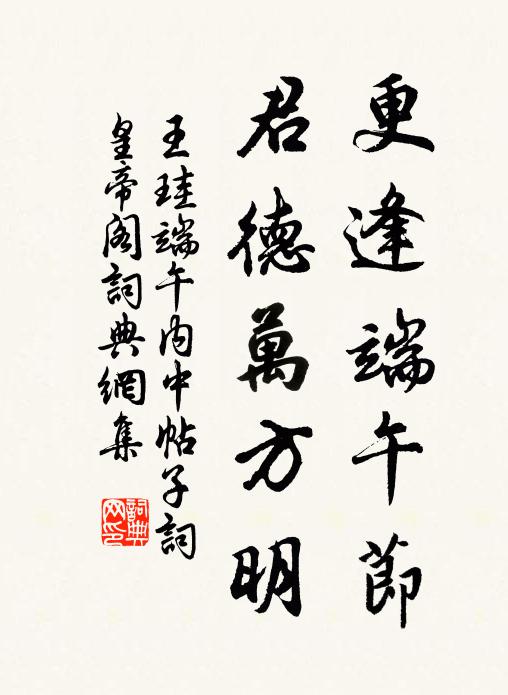 更逢端午節
君德萬方明
王珪端午内中帖子詞
皇帝阁詞典網集
詞典网印